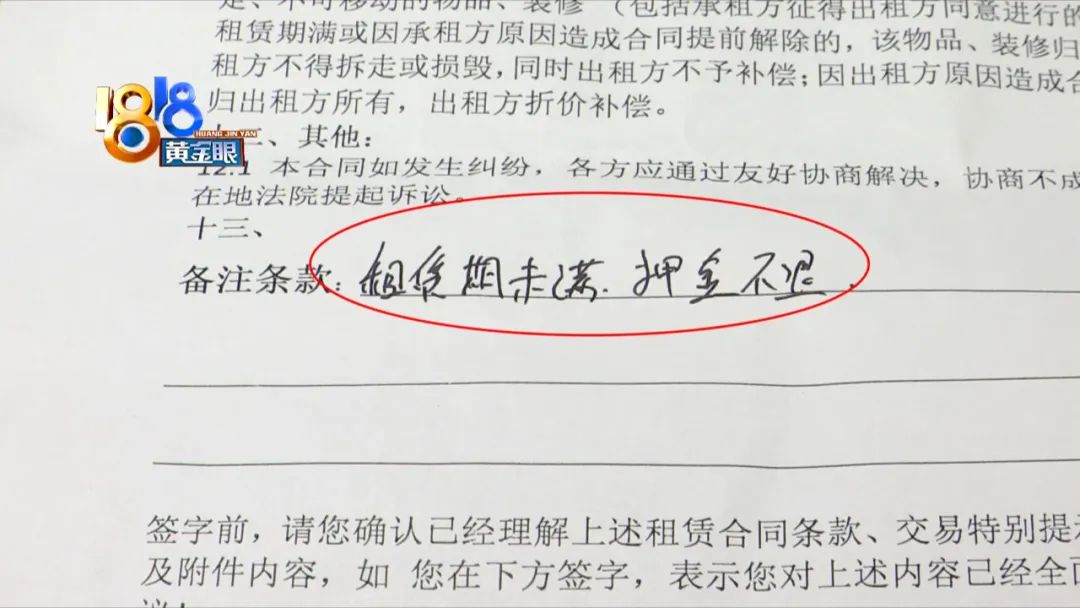 定、不可移动的物品、装修（包括承租方征得出租方同意进行的
租赁期满或因承租方原因造成合同提前解除的，该物品、装修归
租方不得拆走或损毁，同时出租方不予补偿；因出租方原因造成合
归出租方所有，出租方折价补偿。
1818
HUANG JIN YAN
黄金眼
二、其他：
12.1 本合同如发生纠纷，各方应通过友好协商解决，协商不成
在地法院提起诉讼。
十三、
备注条款：租赁期未满.押金不退.
签字前，请您确认已经理解上述租赁合同条款、交易特别提示
及附件内容，如 您在下方签字，表示您对上述内容已经全面
议！